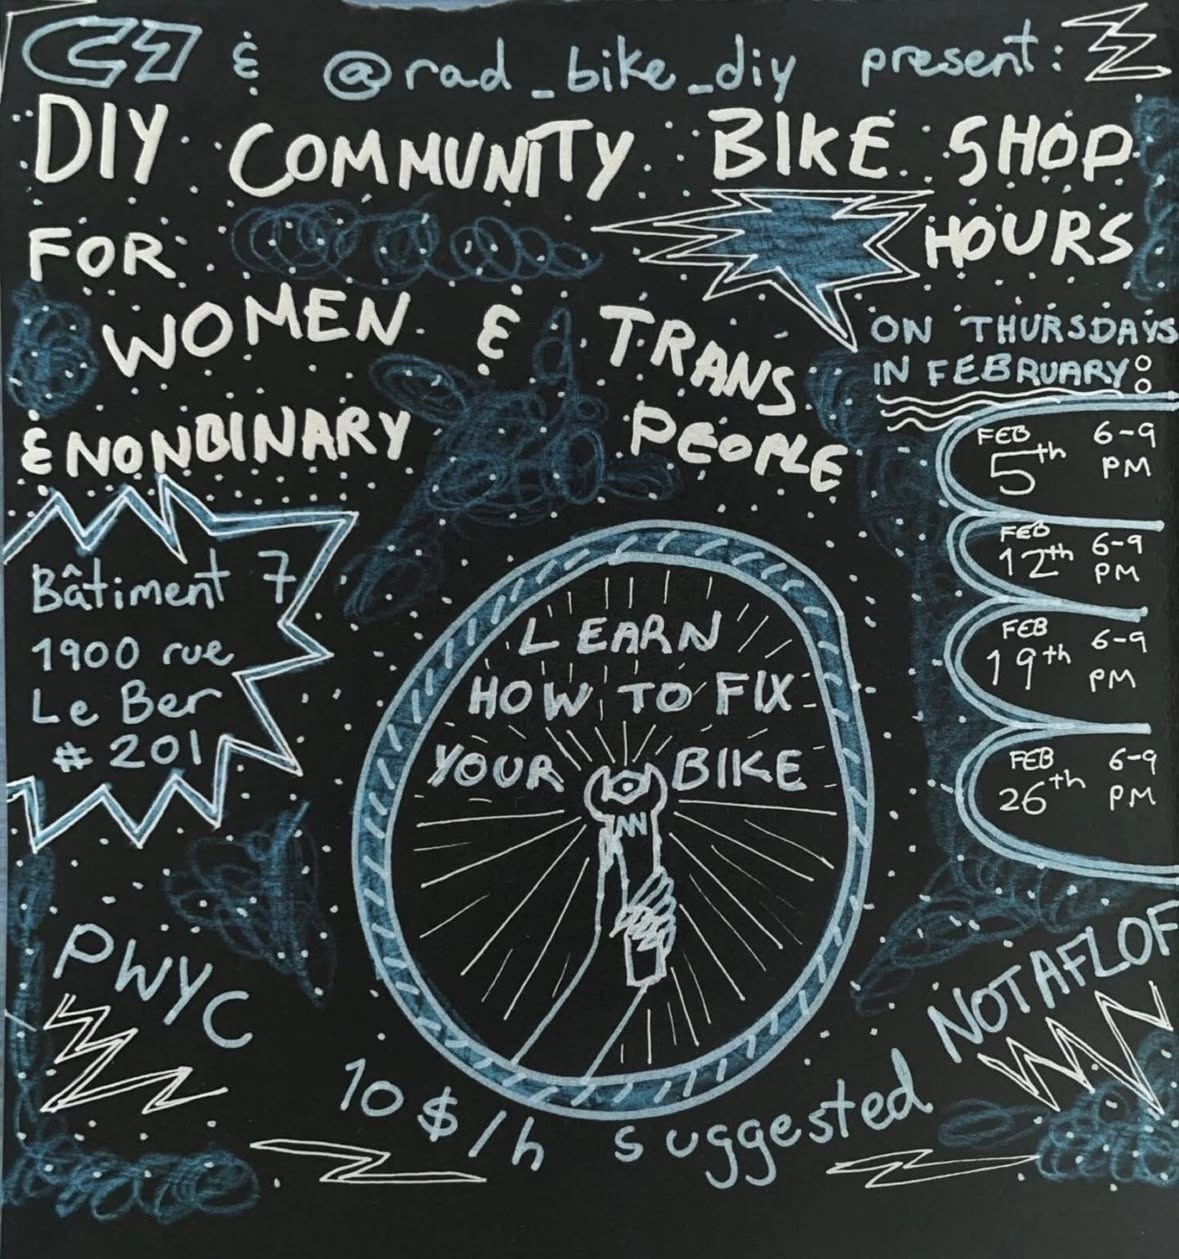 & @rad_bike_diy present:
DIY COMMUNITY BIKE SHOP
HOURS
FOR
WOMEN & TRANS
& NONBINARY PEOPLE
ON THURSDAYS
IN FEBRUARY:
FEB 5th 6-9 PM
FEB 12th 6-9 PM
FEB 19th 6-9 PM
FEB 26th 6-9 PM
Bâtiment 7
1900 rue
Le Ber
# 201
LEARN
HOW TO FIX
YOUR BIKE
PWYC
NOTAFLOF
10$/h suggested